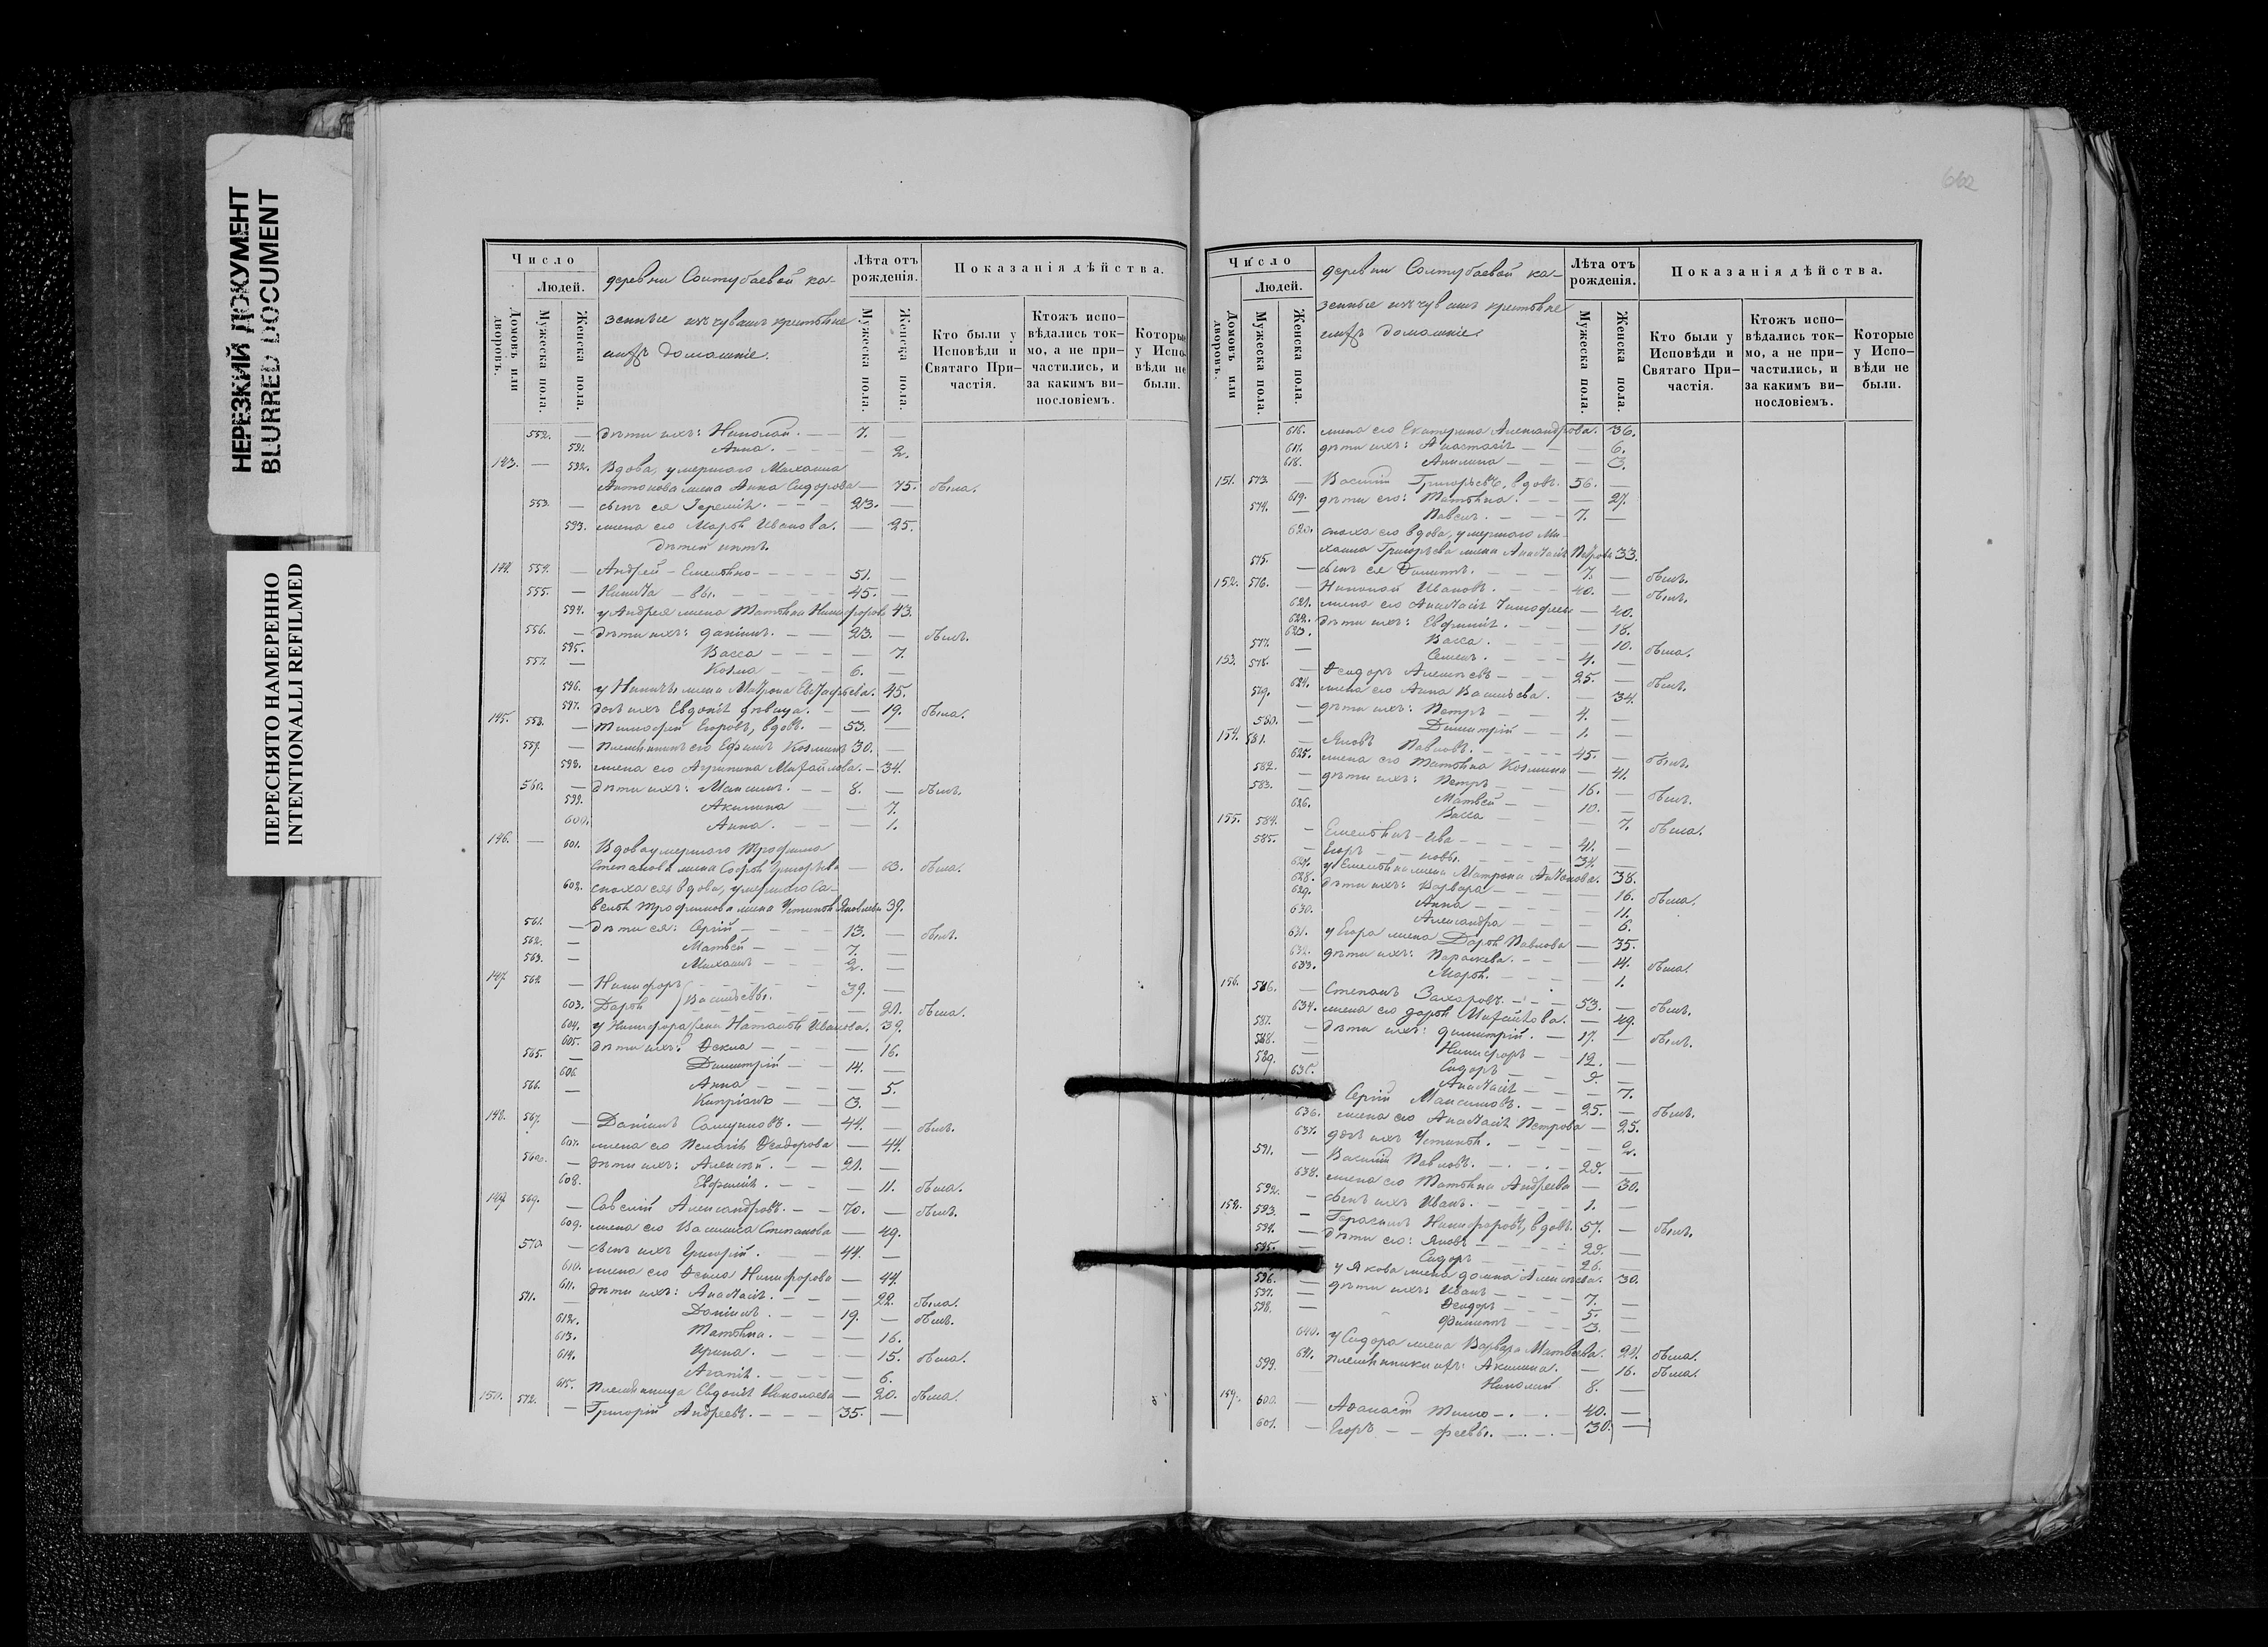 НЕРЕЗКИЙ ДОКУМЕНТ
BLURRED DOCUMENT
ПЕРЕСНЯТО НАМЕРЕННО
INTENTIONALLI REFILMED
Число
Людей.
Домовъ или дворовъ.
Мужеска пола.
Женска пола.
деревни Солтубаевой ка-
зенные изъ чувашъ крестьяне
ихъ домашніе.
Лѣта отъ рожденія.
Мужеска пола.
Женска пола.
Показанія дѣйства.
Кто были у Исповѣди и Святаго При-частія.
Ктожъ испо-вѣдались ток-мо, а не при-частились, и за какимъ ви-пословіемъ.
Которые у Испо-вѣди не были.
552. — дѣти ихъ: Николай. — — 7. —
591. Анна. — — — 2.
143. — 592. Вдова, умершаго Михаила
Антонова жена Анна Сидорова — 75. была.
553. — сынъ ея Іеремій. — — — 23. —
593. жена его Марѳа Иванова. — 25.
дѣтей нѣтъ.
144. 554. — Андрей — Емельяно — — — 51. —
555. — Никита — вы. — — — 45. —
594. у Андрея жена Татьяна Никифорова 43.
556. — дѣти ихъ: Даніилъ. — — 23. — былъ.
595. Васса — — — 7.
557. — Козма — — — 6. —
596. у Никиты жена Матрона Евстафьева. 45.
597. дочь ихъ Евдокія дѣвица. — — 19. была.
145. 558. — Тимофей Егоровъ, вдовъ. — 53. —
559. — Племянникъ его Ефимъ Козминъ 30. —
598. жена его Агрипина Михайлова. — 34.
560. — дѣти ихъ: Максимъ. — — 8. — былъ.
599. Акилина — — — 7.
600. Анна. — — — 1.
146. — 601. Вдова умершаго Трофима
Степанова жена Софья Григорьева — 63. была.
602. сноха ея вдова, умершаго Са-
велья Трофимова жена Устинья Яковлева 39.
561. — дѣти ея: Сергій — — — 13. — былъ.
562. — Матвей — — — 7. —
563. — Михаилъ — — — 2. —
147. 564. — Никифоръ — — — 39. —
603. Дарья Васильевы. — — — 21. была.
604. у Никифора жена Наталья Иванова. 39.
605. дѣти ихъ: Ѳекла — — — 16.
565. — Димитрій — — 14. —
606. Анна — — — — 5.
566. — Кипріанъ — — 3. —
148. 567. — Даніилъ Самуиловъ. — 44. — былъ.
607. жена его Пелагія Ѳеодорова — 44.
568. — дѣти ихъ: Алексѣй. — — 21. —
608. Евфимія. — — — 11. была.
149. 569. — Савелій Александровъ. — — 70. — былъ.
609. жена его Василиса Степанова — 49.
570. — сынъ ихъ Григорій. — — 44. —
610. жена его Ѳекла Никифорова — 44.
611. дѣти ихъ: Анастасія. — — — 22. была.
571. — Даніилъ. — — 19. — былъ.
612. Татьяна. — — — 16.
613. Ирина. — — — 15. была.
614. Агапія. — — — 6.
615. Племянница Евдокія Николаева — 20. была.
150. 572. — Григорій Андреевъ. — — — 35. —
662
Число
Людей.
Домовъ или дворовъ.
Мужеска пола.
Женска пола.
деревни Солтубаевой ка-
зенные изъ чувашъ крестьяне
ихъ домашніе.
Лѣта отъ рожденія.
Мужеска пола.
Женска пола.
Показанія дѣйства.
Кто были у Исповѣди и Святаго При-частія.
Ктожъ испо-вѣдались ток-мо, а не при-частились, и за какимъ ви-пословіемъ.
Которые у Испо-вѣди не были.
616. жена его Екатерина Александрова. 36.
617. дѣти ихъ: Анастасія — — — 6.
618. Акилина — — — 3.
151. 573. — Василій Григорьевъ, вдовъ. 56. —
619. дѣти его: Татьяна. — — — 27.
574. — Павелъ. — — — 7. —
620. сноха его вдова, умершаго Ми-
хаила Григорьева жена Анастасія Петрова 33.
575. — сынъ ея Филиппъ. — — — 7. — былъ.
152. 576. — Николай Ивановъ. — — — 40. — былъ.
621. жена его Анастасія Тимофеева — 40.
622. дѣти ихъ: Евфимія. — — — 18.
623. Васса. — — — 10. была.
577. — Семенъ. — — — 4. —
153. 578. — Ѳеодоръ Алексѣевъ — — 25. — былъ.
624. жена его Анна Васильева. — 34.
579. — дѣти ихъ: Петръ — — 4. —
580. — Димитрій — — 1. —
154. 581. — Яковъ Павловъ. — — — 45. — былъ.
625. жена его Татьяна Козмина — 41.
582. — дѣти ихъ: Петръ — — — 16. — былъ.
583. — Матвей — — — 10. —
626. Васса — — — 7. была.
155. 584. — Емельянъ — Ива — — — 41. —
585. — Егоръ — — новы. — — — 34. —
627. у Емельяна жена Матрона Антонова. 38.
628. дѣти ихъ: Варвара — — — 16. была.
629. Анна — — — — 11.
630. Александра — — — 6.
631. у Егора жена Дарья Павлова — 35.
632. дѣти ихъ: Параскева. — — — 14. была.
633. Марѳа. — — — 1.
156. 586. — Степанъ Захаровъ. — — — 53. — былъ.
634. жена его Дарья Михайлова. — 49.
587. — дѣти ихъ: Димитрій. — 17. — былъ.
588. — Никифоръ — — 12. —
589. — Сидоръ — — 9. —
635. Анастасія — — — 7.
Сергій Максимовъ. — — 25. — былъ.
636. жена его Анастасія Петрова — 25.
637. дочь ихъ Устинья. — — — 2.
591. — Василій Павловъ. — — — 28. —
638. жена его Татьяна Андреева — 30.
592. — сынъ ихъ Иванъ. — — — 1. —
158. 593. — Герасимъ Никифоровъ, вдовъ. 57. — былъ.
594. — дѣти его: Яковъ — — — 28. —
595. — Сидоръ — — — 26. —
у Якова жена Домна Алексѣева. 30.
596. — дѣти ихъ: Иванъ — — — 7. —
597. — Ѳеодоръ — — — 5. —
598. — Филиппъ — — — 3. —
640. у Сидора жена Варвара Матвѣева. 24. была.
641. племянники ихъ: Акилина. — 16. была.
599. Николай 8. —
159. 600. — Афанасій Тимо — — — 40. —
601. — Егоръ — — феевы. — — — 30. —